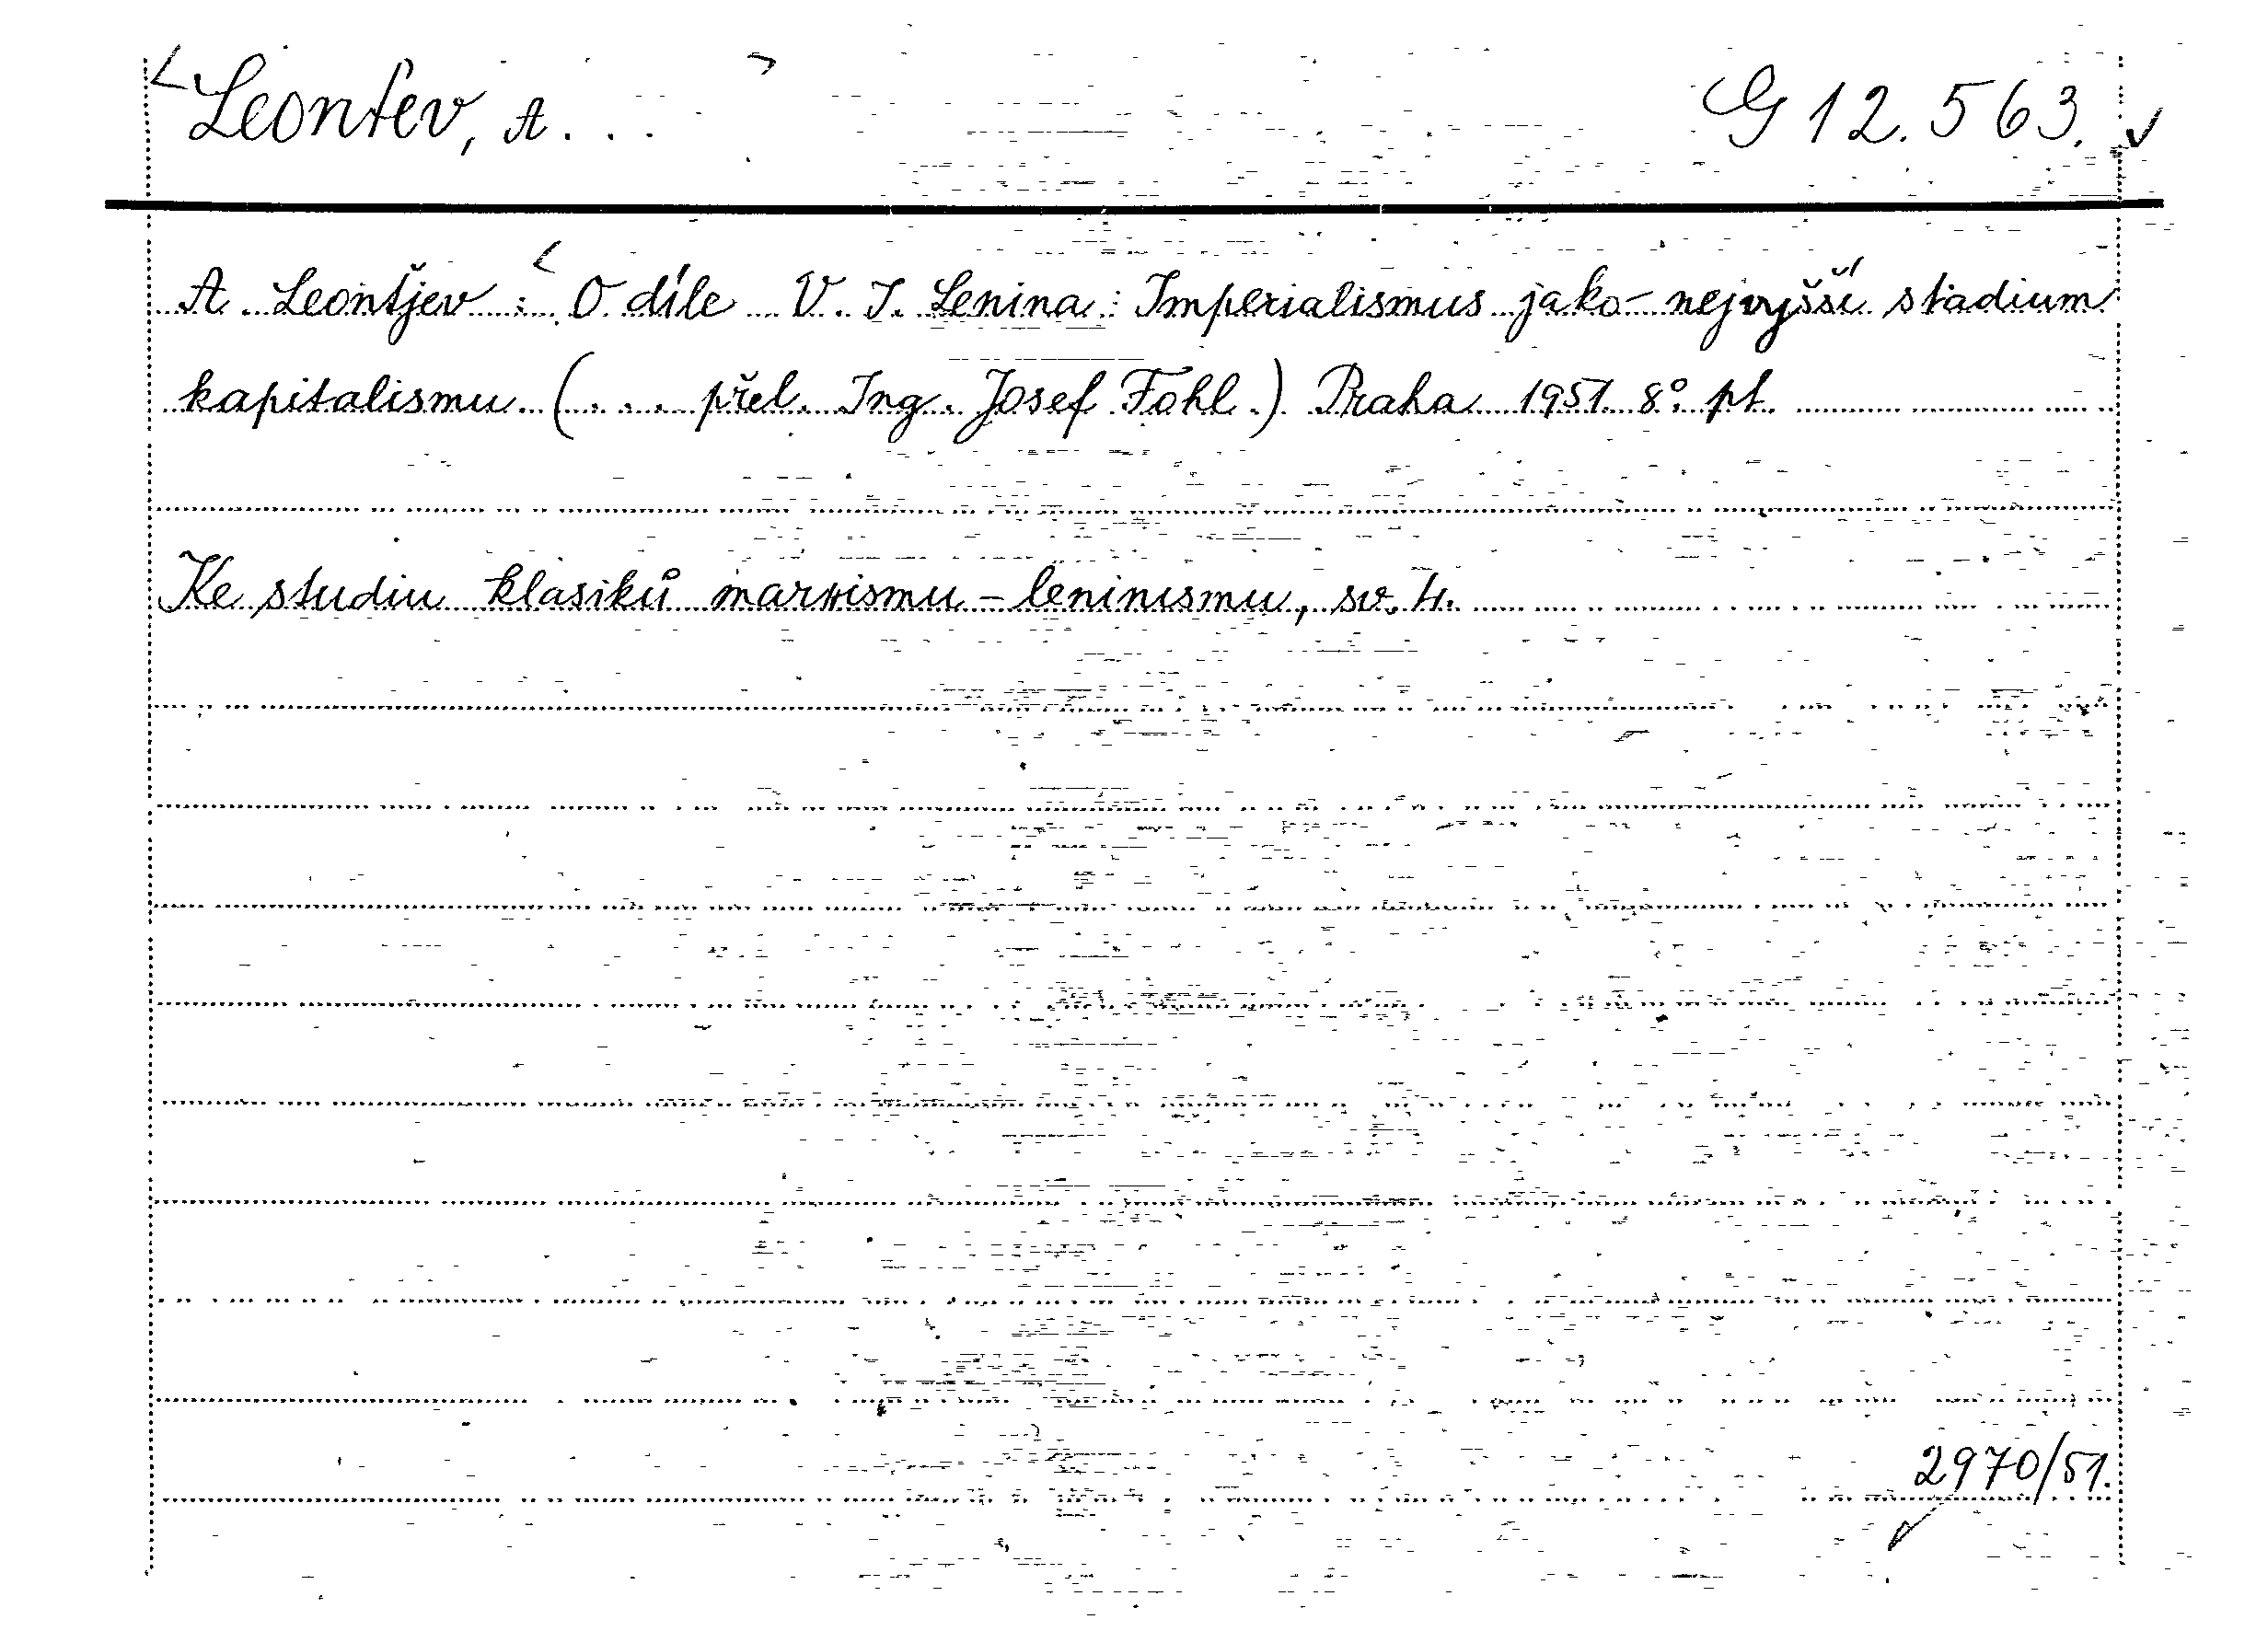 Leonťev, A... G 12.563.
A. Leonťjev: O díle V. I. Lenina: Imperialismus jako nejvyšší stadium
kapitalismu (... přel. Ing. Josef Fohl.) Praha 1951. 8° pt.
Ke studiu klasiků marxismu-leninismu, sv. 4.
2970/51.